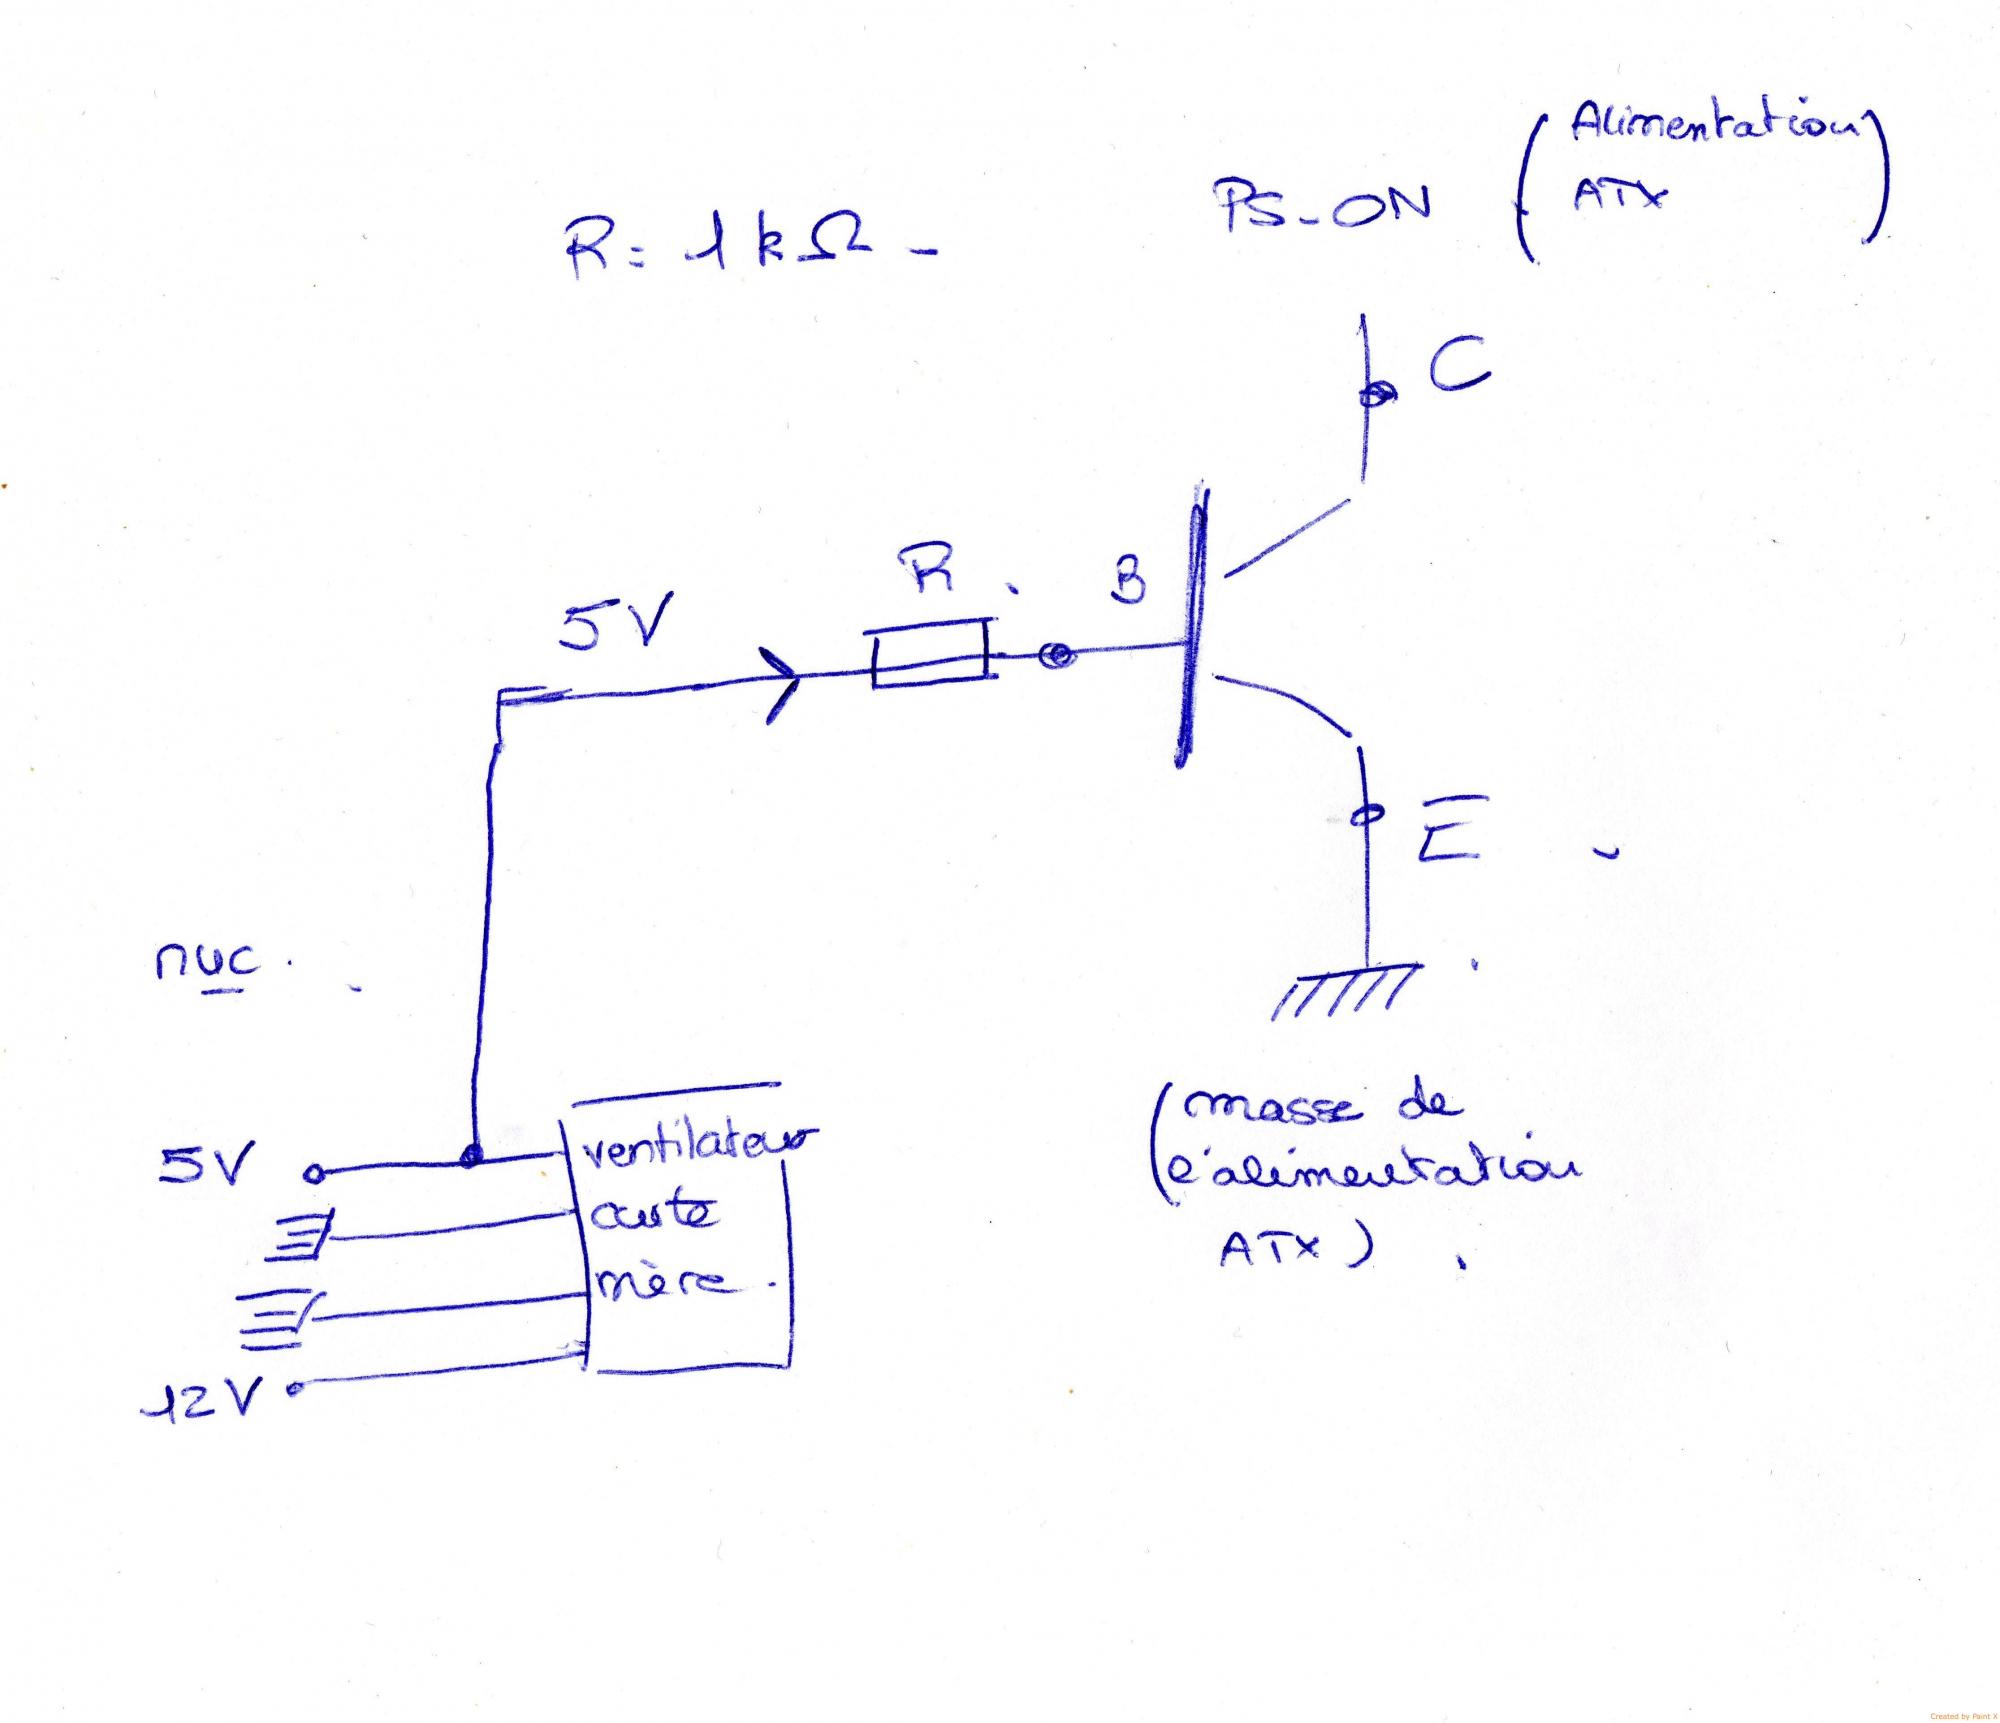 Alimentation
PS-ON
ATX
R = 1 kΩ
C
R
B
5V
E
nuc.
(masse de
l'alimentation
ATX)
5V
ventilateur
carte
mère
12V
Created by Paint X